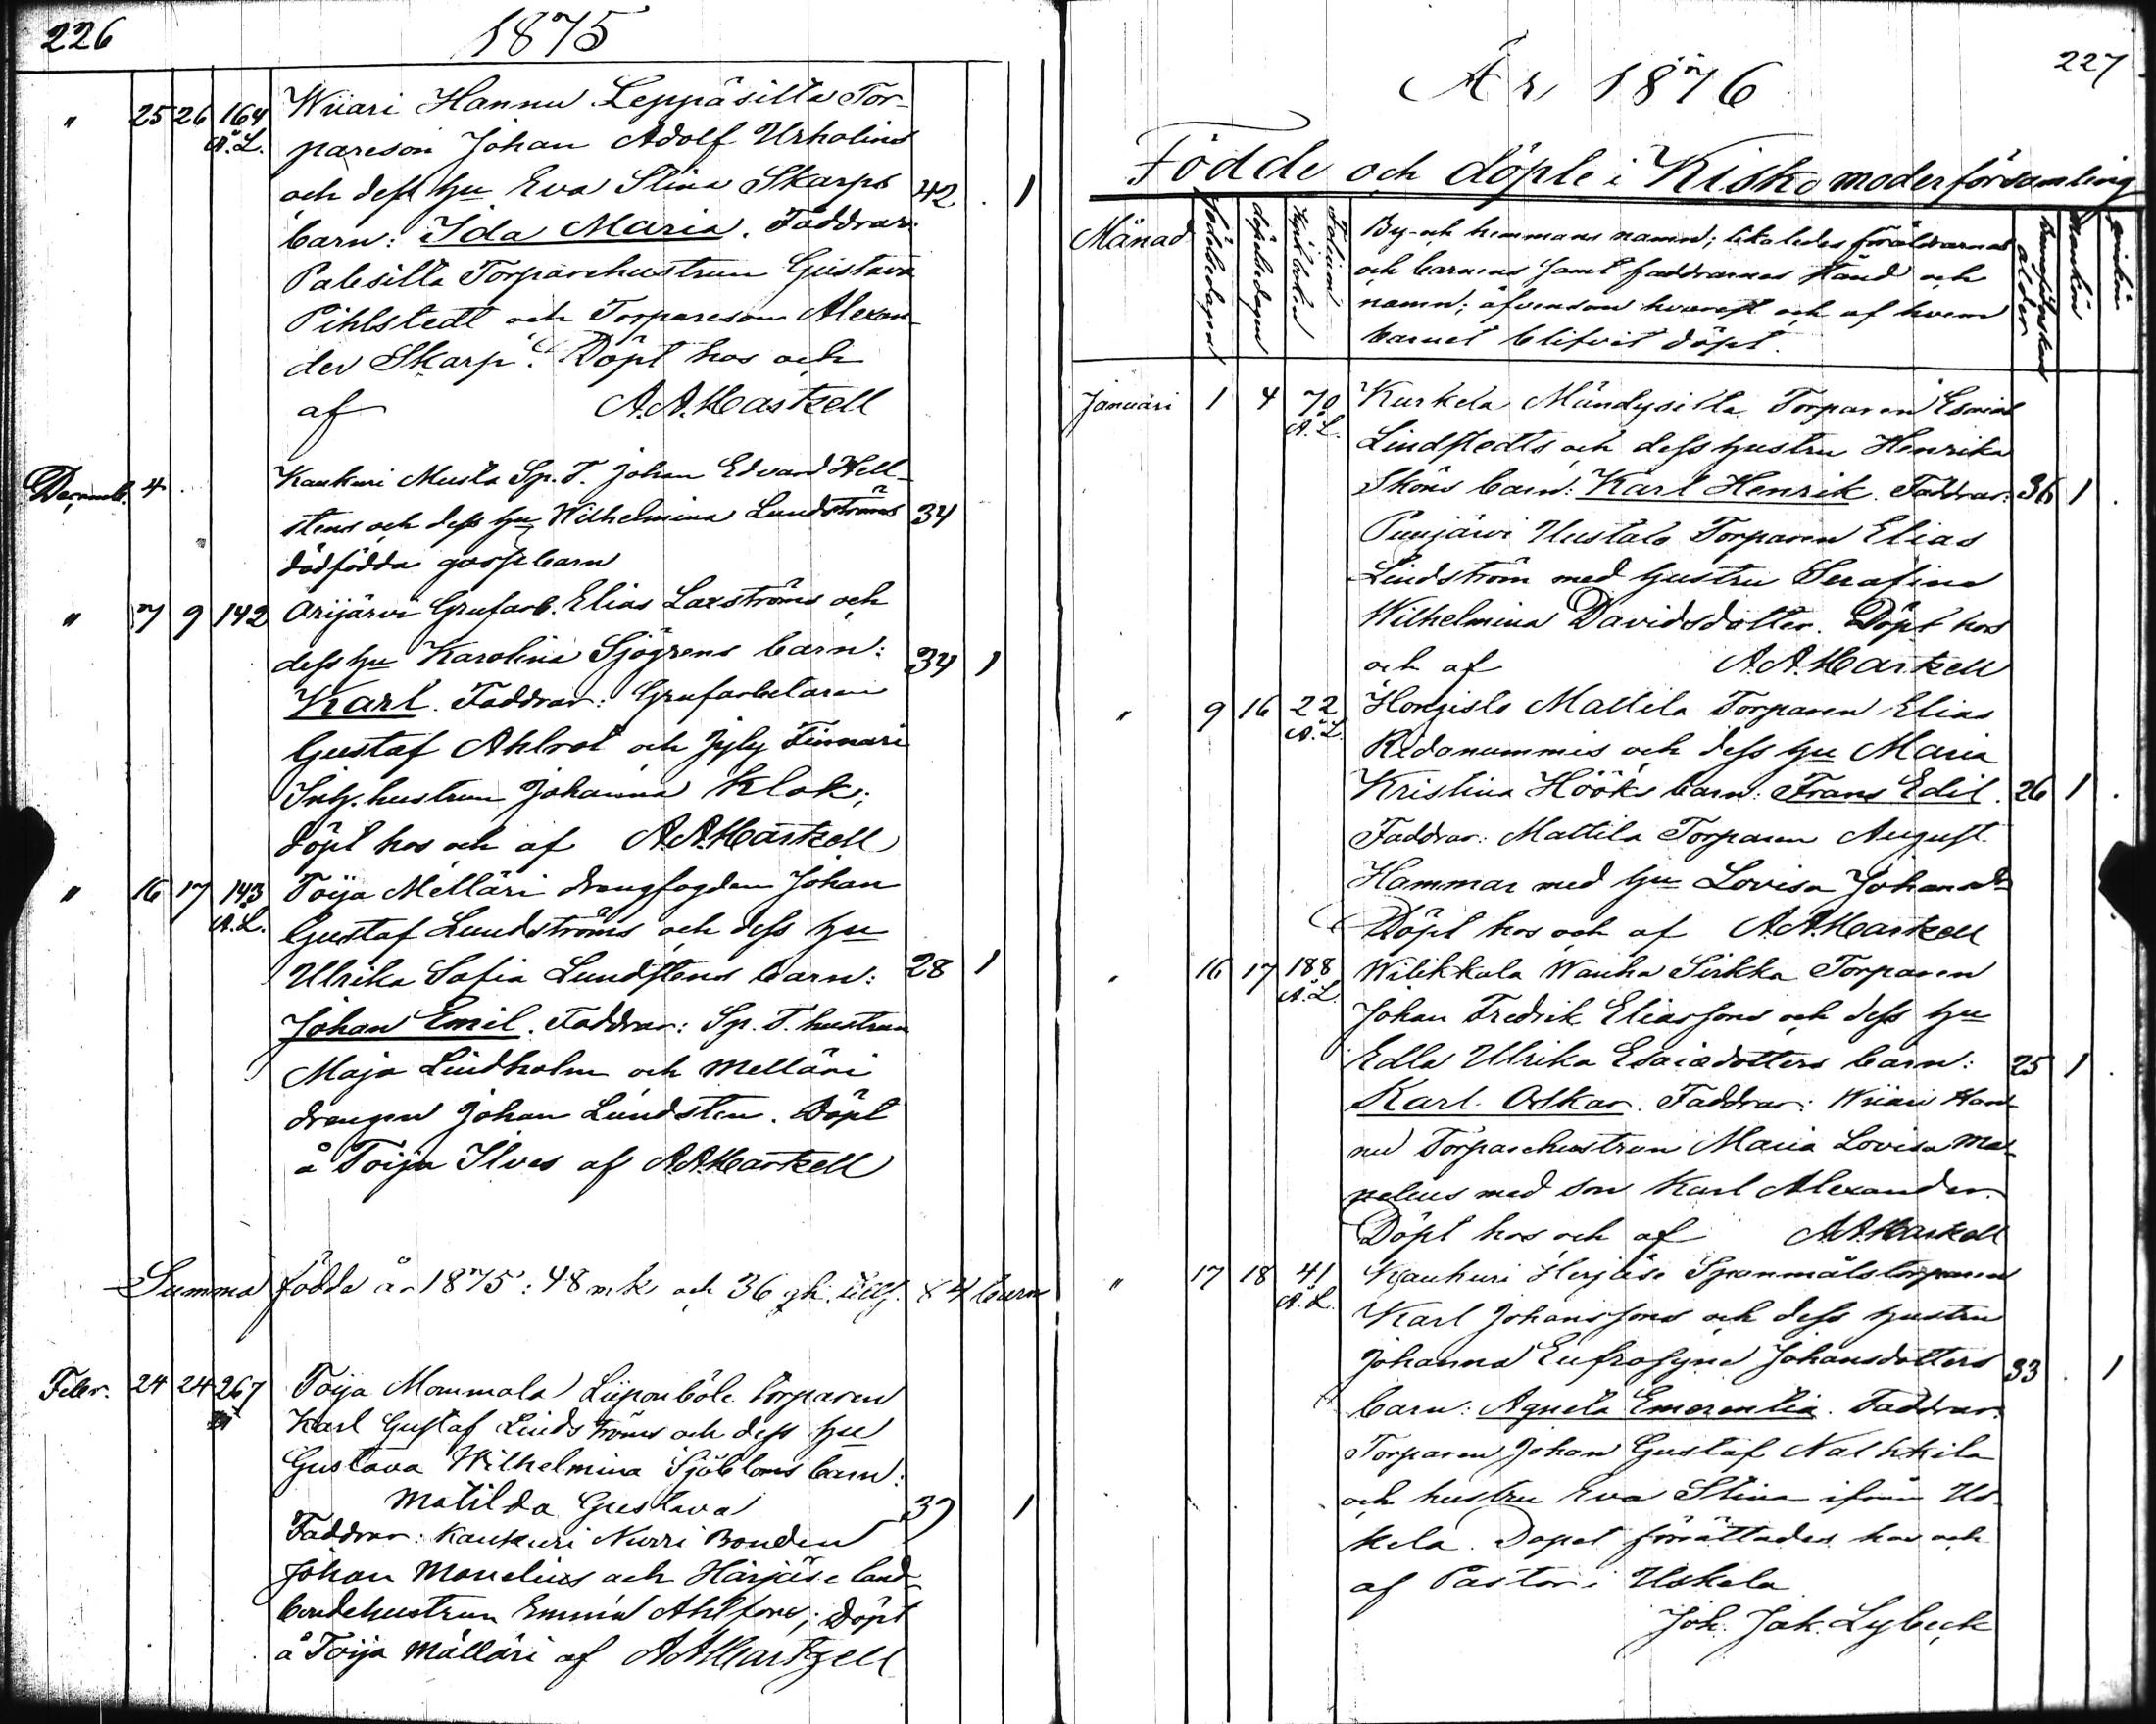 226
1875
" 25 26 164 Wiiari Hannu Leppäsilta Tor-
A.L. pareson Johan Adolf Urholins
och dess hu Eva Stina Skarps 42 . 1
barn: Ida Maria. Faddrar:
Palesilta Torparehustrun Gustava
Pihlstedt och Torpareson Alexan-
der Skarp. Döpt hos och
af A.A.Hartzell
Decemb. 4 Kaukuri Musta Sp. T. Johan Edvard Hell-
stens och dess hu Wilhelmina Lundströms 34
dödfödda gossebarn
" 7 9 142 Orijärvi Grufarb. Elias Laxströms och
dess hu Karolina Sjögrens barn: 34 1
Karl. Faddrar: Grufarbetaren
Gustaf Ahlrot och Jyly Finnari
hustrun Johanna Klok;
döpt hos och af A.A.Hartzell
" 16 17 143 Toija Melläri drengfogden Johan
A.L. Gustaf Lundströms och dess hu
Ulrika Sofia Lundstens barn: 28 1
Johan Emil. Faddrar: Sp. T. hustrun
Maja Lindholm och Melläri
drengen Johan Lundsten. Döpt
å Toija Ilves af A.A.Hartzell
Summa födde år 1875: 48 mk. och 36 qk. tills. 84 barn
Febr. 24 24 267 Toija Mommola Liiponböle torparen
Karl Gustaf Lindströms och dess hu
Gustava Wilhelmina Sjöbloms barn:
Matilda Gustava 37 1
Faddrar: Kaukuri Nurri Bonden
Johan Monelius och Härjäse land-
bondehustrun Emma Ahlfors; Döpt
å Toija Mälläri af A.A.Hartzell
227
År 1876
Födde och döpte i Kisko moderförsamling
Månad
Födelsedagen
döpelsedagen
Folium i Kyrkboken
By- och hemmans namn; likaledes föräldrarnas
och barnens samt faddrarnes stånd och
namn; äfvensom hvarest och af hvem
barnet blifvit döpt.
Barnaföderskans ålder
mankön
qvinkön
Januari 1 4 70 Kurkela Mändysilla Torparen Esaias
A.L. Lindstedts och dess hustru Henrika
Sköns barn: Karl Henrik. Faddrar: 36 1 .
Punjärvi Uustalo Torparen Elias
Lindström med hustru Serafina
Wilhelmina Davidsdotter. Döpt hos
och af A.A.Hartzell
" 9 16 22 Hongisto Mattila Torparen Elias
A.L. Ridanummis och dess hu Maria
Kristina Hööks barn: Frans Edil. 26 1 .
Faddrar: Mattila Torparen August
Hammar med hu Lovisa Johansdr
Döpt hos och af A.A.Hartzell
" 16 17 188 Wilikkala Wanha Sirkka Torparen
A.L. Johan Fredrik Eliassons och dess hu
Edla Ulrika Esaiædotters barn: 25 1 .
Karl Oskar. Faddrar: Wiiari Han-
nu Torparehustrun Maria Lovisa
med son Karl Alexander.
Döpt hos och af A.A.Hartzell
" 17 18 41 Kaukuri Herjäse Spanmålstorparen
A.L. Karl Johanssons och dess hustru
Johanna Eufrosyne Johansdotters 33 . 1
barn: Agneta Emerentia. Faddrar:
Torparen Johan Gustaf
och hustru Eva Stina ifrån Us-
kela. Dopet förrättades hos och
af Pastor i Uskela
Joh. Jak. Lybeck